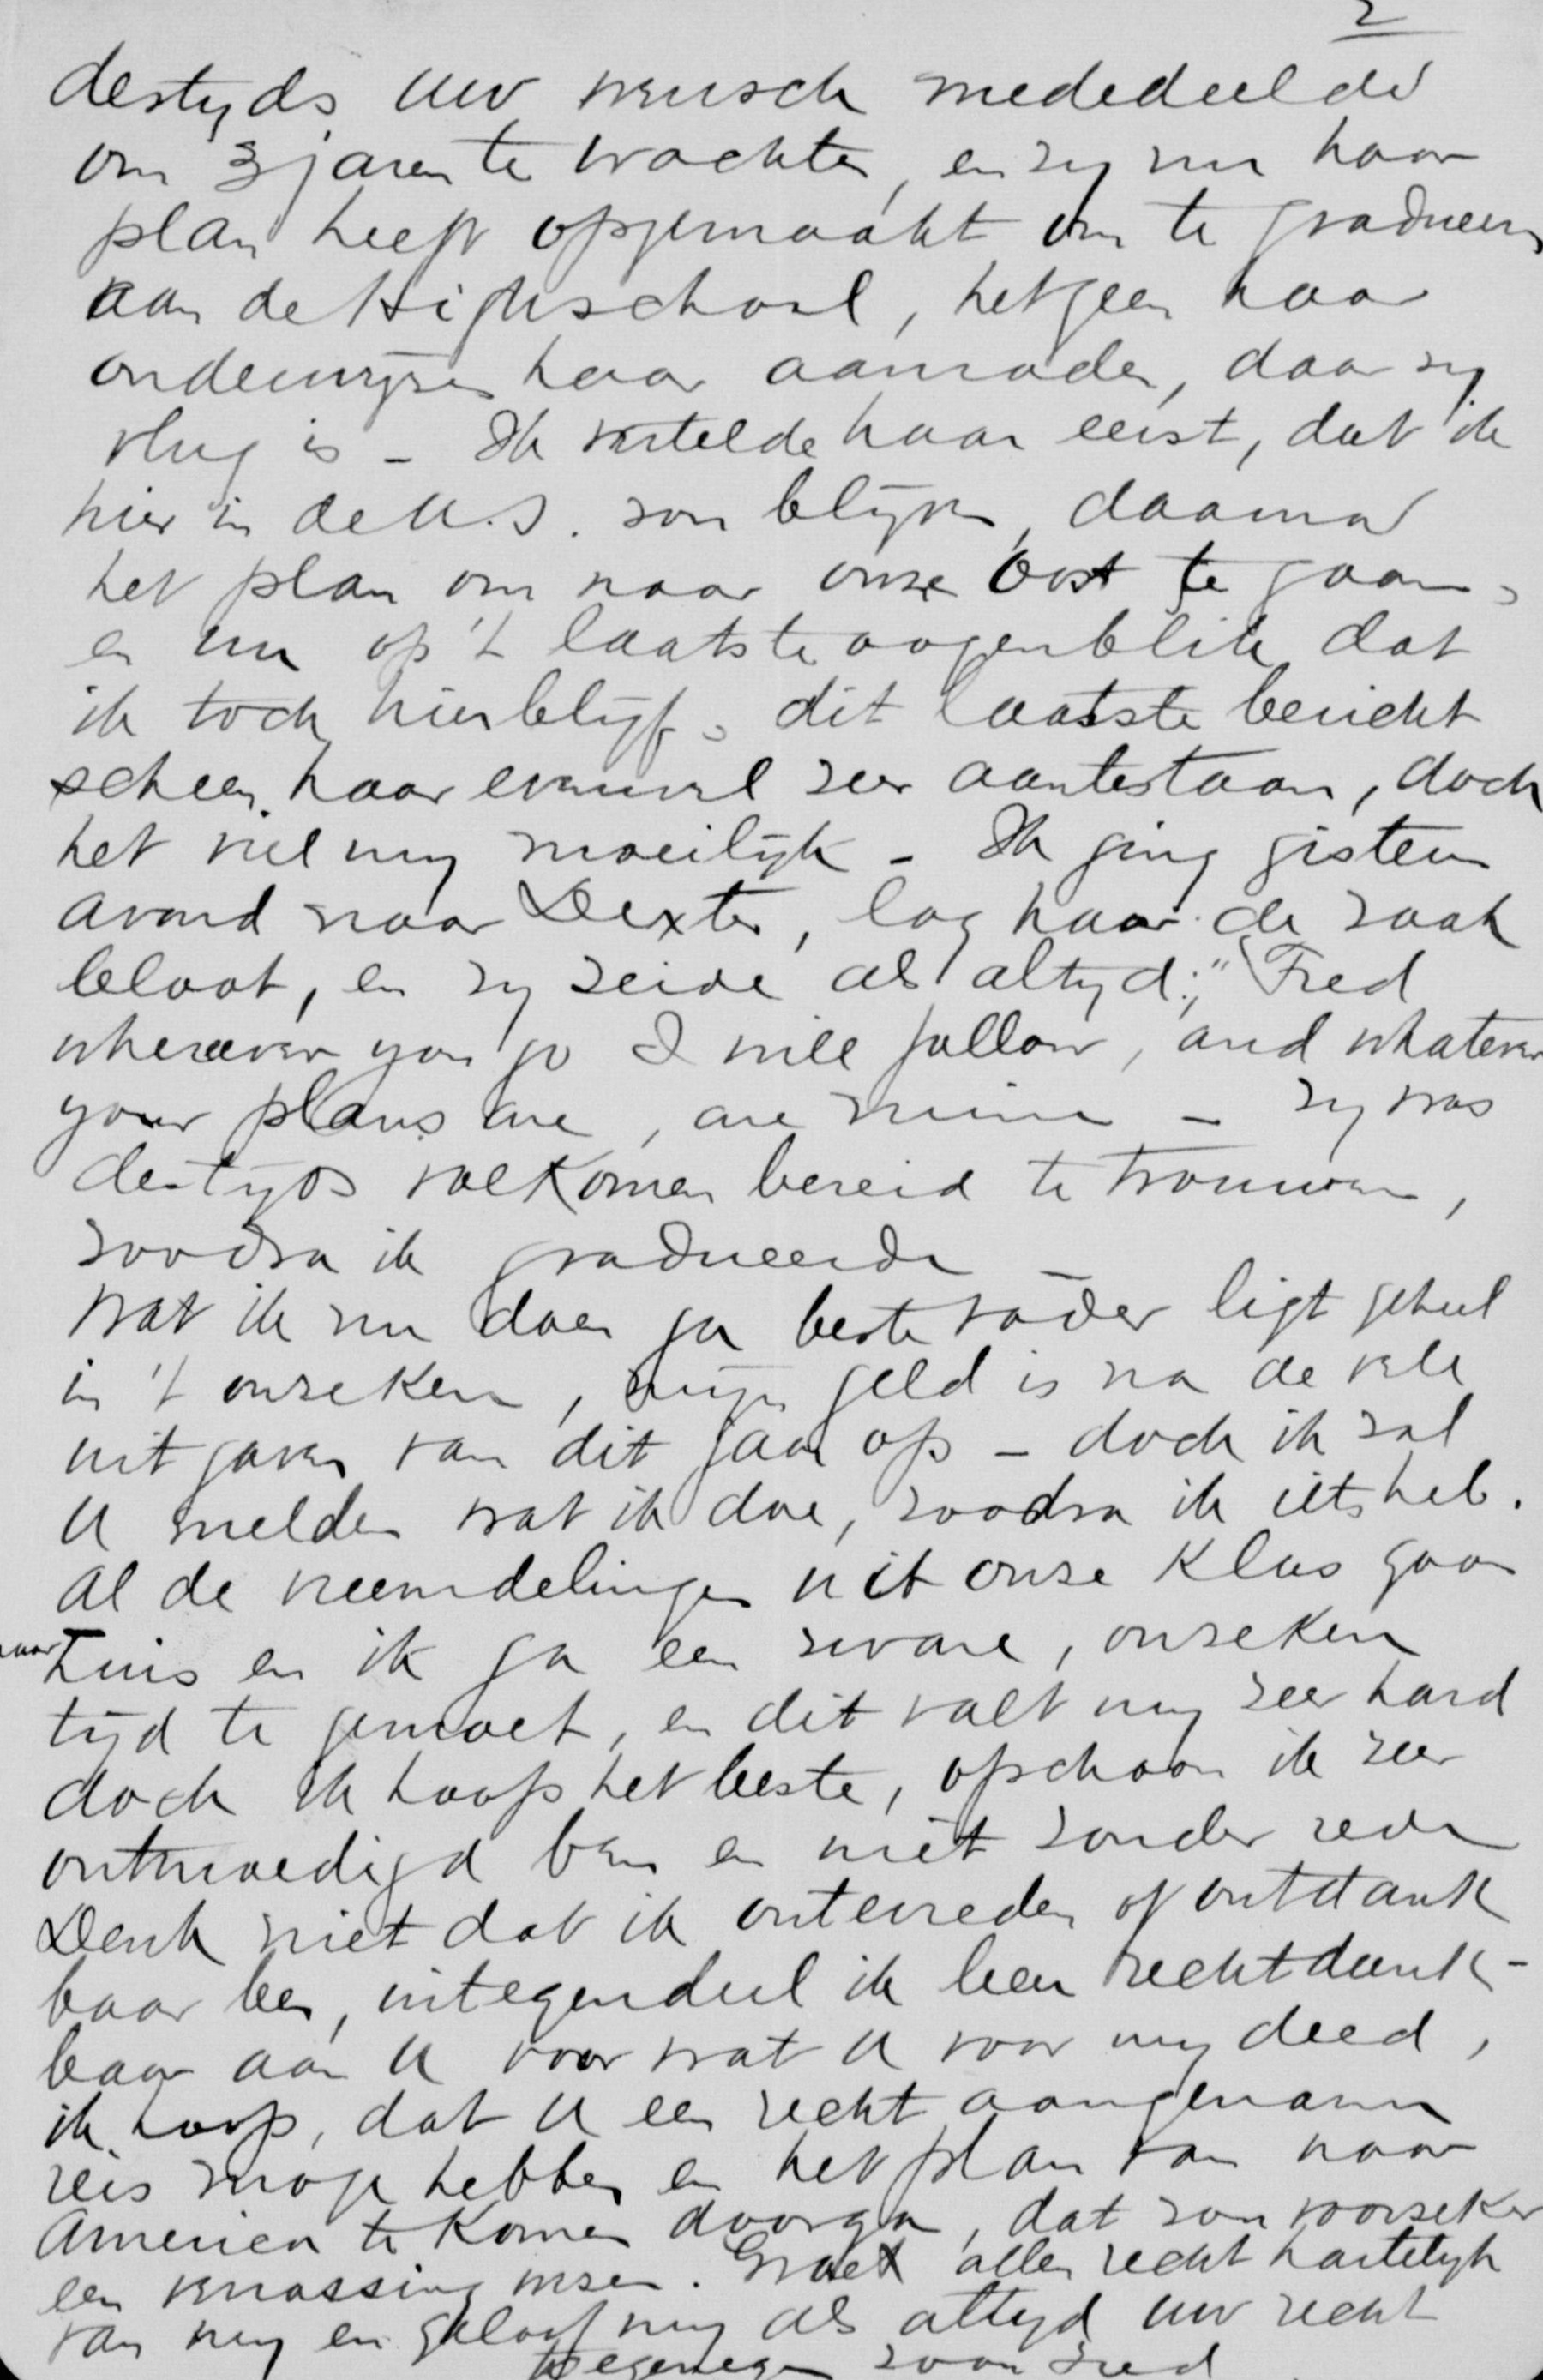 2
destyds uw wensch mededeelde
om 3 jaren te wachten, en zy nu haar
plan heeft opgemaakt om te gradueeren
aan de Highschool, hetgeen haar
onderwijzers haar aanraden, daar zy
vlug is - Ik vertelde haar eerst, dat ik
hier in de U.S. zou blijven, daarna
het plan om naar onze Oost te gaan,
en nu op 't laatste oogenblik dat
ik toch hier blijf, dit laatste bericht
scheen haar evenwel zeer aantestaan, doch
het viel my moeilijk - Ik ging gisteren
avond naar Dexter, lag haar de zaak
bloot, en zy zeide als altyd: "Fred
wherever you go I will follow, and whatever
your plans are, are mine - zy was
destyds volkomen bereid te trouwen,
zoodra ik gradueerde -
Wat ik nu doen ga beste vader ligt geheel
in 't onzekere, mijn geld is na de vele
uitgaven van dit jaar op - doch ik zal
U melden wat ik doe, zoodra ik iets heb.
Al de vreemdelingen uit onze klas gaan
naar huis en ik ga een zware, onzekere
tijd te gemoet, en dit valt my zeer hard
doch ik hoop het beste, opschoon ik zeer
ontmoedigd ben en niet zonder reden
Denk niet dat ik ontevreden of ontdank
baar ben, integendeel ik ben recht dank-
baar aan U voor wat U voor my deed,
ik hoop, dat U een recht aangename
reis moge hebben en het plan van naar
America te komen doorga, dat zou voorzeker
een verrassing wezen. Groet allen recht hartelyk
van my en geloof my als altyd uw recht
toegenegen zoon Fred